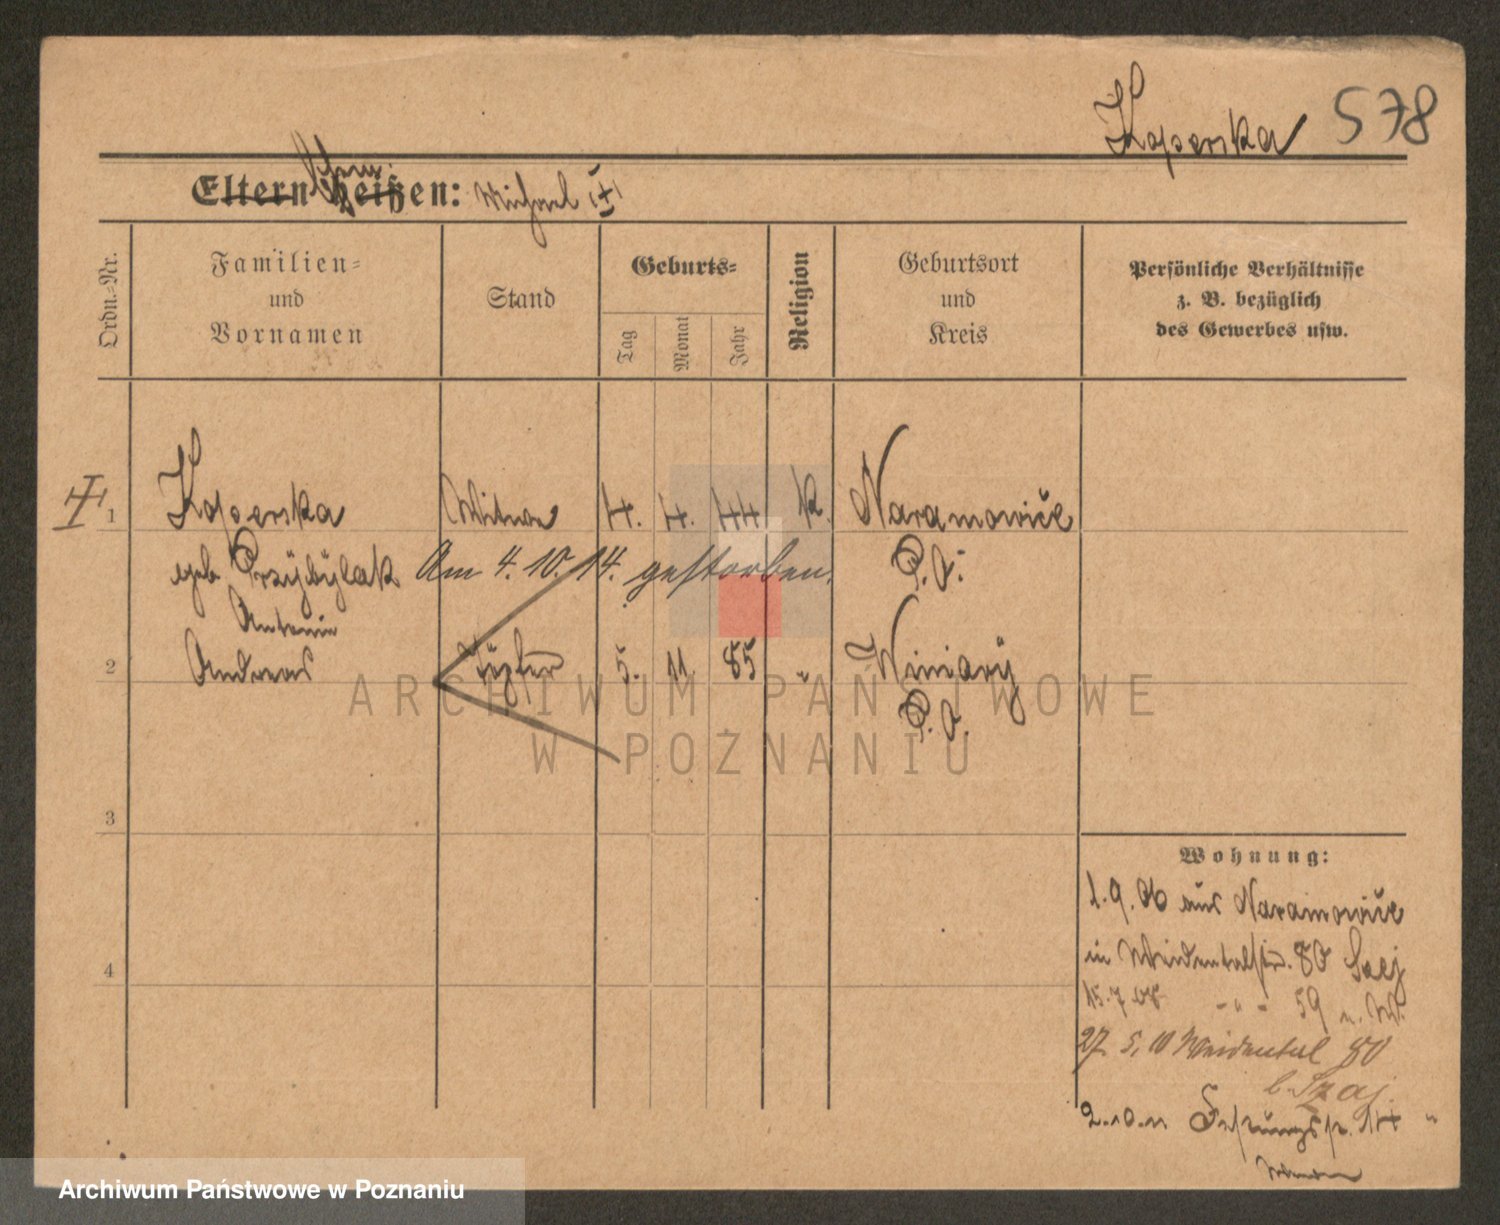 Koperska 578
Eltern heißen: Michael
Ordn.-Nr.
Familien-
und
Vornamen
Stand
Geburts-
Tag
Monat
Jahr
Religion
Geburtsort
und
Kreis
Persönliche Verhältnisse
z. B. bezüglich
des Gewerbes usw.
1 Koperska Witwe 4. 4. 44 k. Naramowice
geb Przybylak Am 4. 10. 14. gestorben. P. O.
Antonie
2 Andreas Töpfer 5. 11. 85 " Winiary
P. O.
3
4
Wohnung:
1.9.06 aus Naramowice
in Weidentalstr. 80
15.7.08 - " - 59
27. 5. 10 Weidental 80
b. Szaj.
2.10.11 14
ARCHIWUM PAŃSTWOWE
W POZNANIU
Archiwum Państwowe w Poznaniu